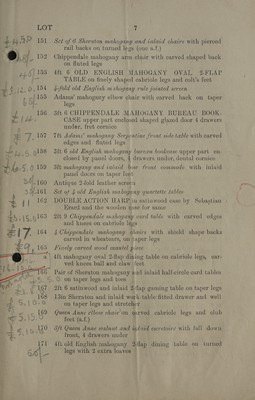 LOT 7
151 Set of 6 Sheraton mahogany and inlaid chairs with pierced
rail backs on turned legs (one a.f.)
152 Chippendale mahogany arm chair with carved shaped back
on fluted legs
153 4ft 6 OLD ENGLISH MAHOGANY OVAL 2-FLAP
TABLE on finely shaped cabriole legs and colt's feet
154 4-fold old English mahogany rule jointed screen
155 Adams' mahogany elbow chair with carved back on taper
legs
156 3ft 6 CHIPPENDALE MAHOGANY BUREAU BOOK-
CASE upper part enclosed shaped glazed door 4 drawers
under, fret cornice
157 7ft Adams' mahogany Serpentine front side table with carved
edges and fluted legs
158 3ft 6 old English mahogany bureau bookcase upper part en-
closed by panel doors, 4 drawers under, dental cornice
159 3ft mahogany and inlaid bow front commode with inlaid
panel doors on taper feet
160 Antique 2-fold leather screen
161 Set of 4 old English mahogany quartette tables
162 DOUBLE ACTION HARP in satinwood case by Sebastian
Erard and the wooden case for same
163 2ft 9 Chippendale mahogany card table with carved edges
and knees on cabriole legs
164 4 Chippendale mahogany chairs with shield shape backs
carved in wheatears, on taper legs
165 Finely carved wood mantel piece
4ft mahogany oval 2-flap dining table on cabriole legs, car-
ved knees ball and claw feet
166 Pair of Sheraton mahogany and inlaid half-circle card tables
on taper legs and toes
167 2ft 6 satinwood and inlaid 2-flap gaming table on taper legs
168 15in Sheraton and inlaid work table fitted drawer and well
on taper legs and stretcher
169 Queen Anne elbow chair on carved cabriole legs and club
feet (a.f.)
170 3ft Queen Anne walnut and inlaid secretaire with fall down
front, 4 drawers under
171 4ft old English mahogany 2-flap dining table on turned
legs with 2 extra leaves